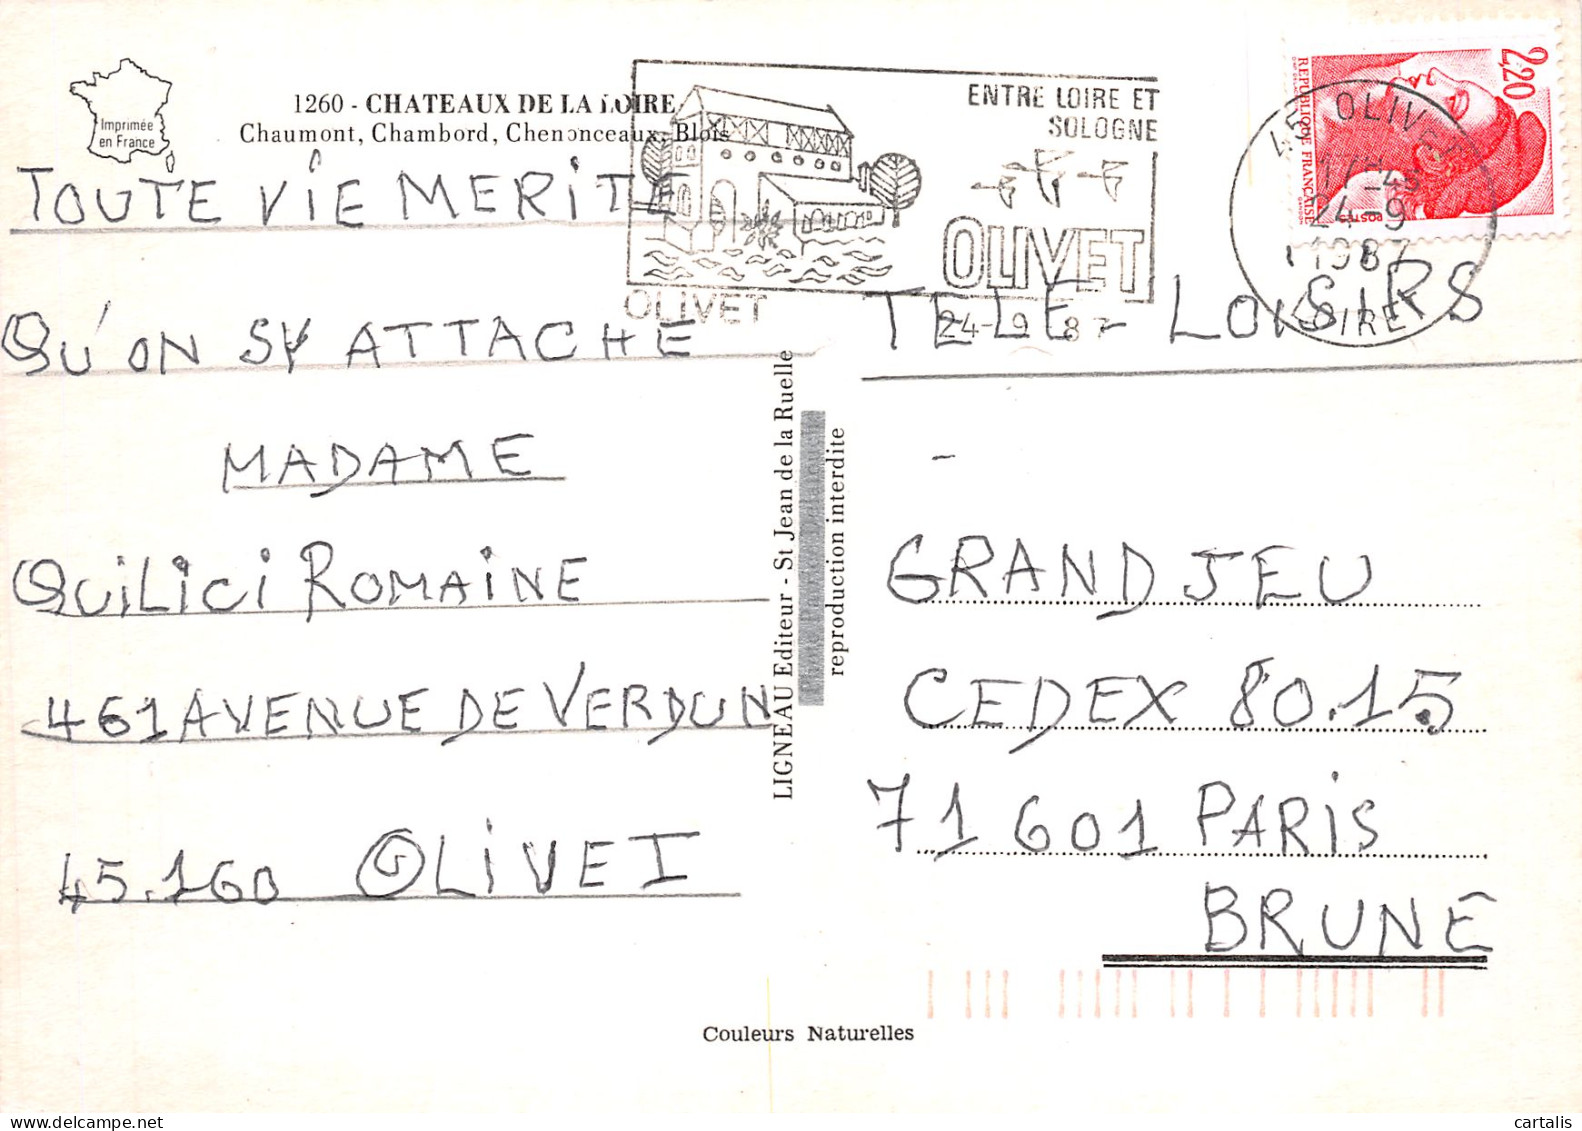 Imprimée
en France
1260 - CHATEAUX DE LA LOIRE
Chaumont, Chambord, Chenonceaux, Blois
TOUTE VIE MERITE
QU'ON SY ATTACHE
MADAME
QUILICI ROMAINE
461 AVENUE DE VERDUN
45.160 OLIVET
LIGNEAU Editeur - St Jean de la Ruelle
reproduction interdite
ENTRE LOIRE ET
SOLOGNE
OLIVET
OLIVET
24-9 87
45 OLIVET
17H45
24-9
1987
LOIRET
2,20
REPUBLIQUE FRANCAISE
POSTES
TELE - LOISIRS
GRAND JEU
CEDEX 80.15
71 601 PARIS
BRUNE
Couleurs Naturelles
delcampe.net
cartalis